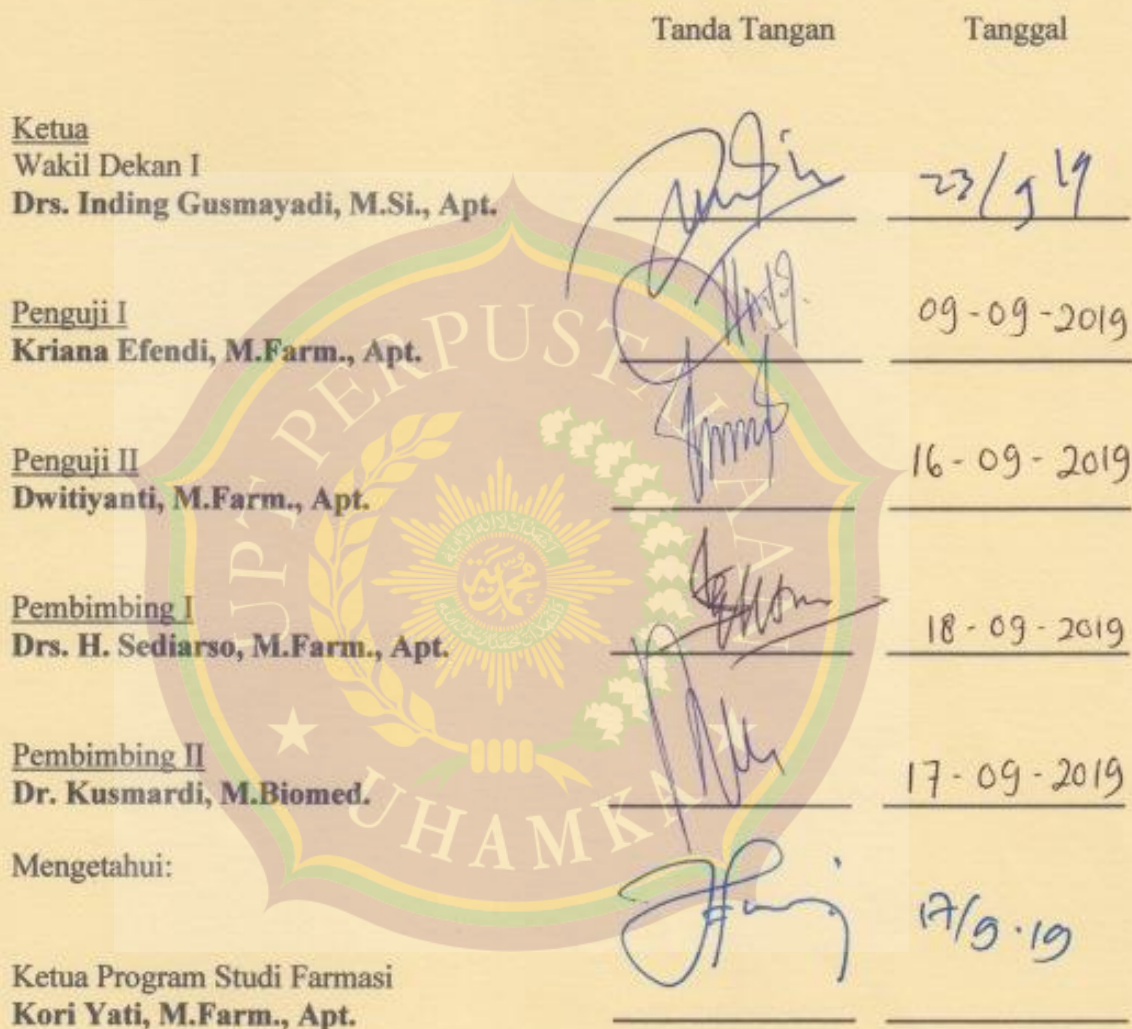 Tanda Tangan Tanggal
Ketua
Wakil Dekan I
Drs. Inding Gusmayadi, M.Si., Apt. 23/9 19
Penguji I
Kriana Efendi, M.Farm., Apt. 09-09-2019
Penguji II
Dwitiyanti, M.Farm., Apt. 16-09-2019
Pembimbing I
Drs. H. Sediarso, M.Farm., Apt. 18-09-2019
Pembimbing II
Dr. Kusmardi, M.Biomed. 17-09-2019
Mengetahui:
17/9.19
Ketua Program Studi Farmasi
Kori Yati, M.Farm., Apt.
UPT PERPUSTAKAAN
UHAMKA